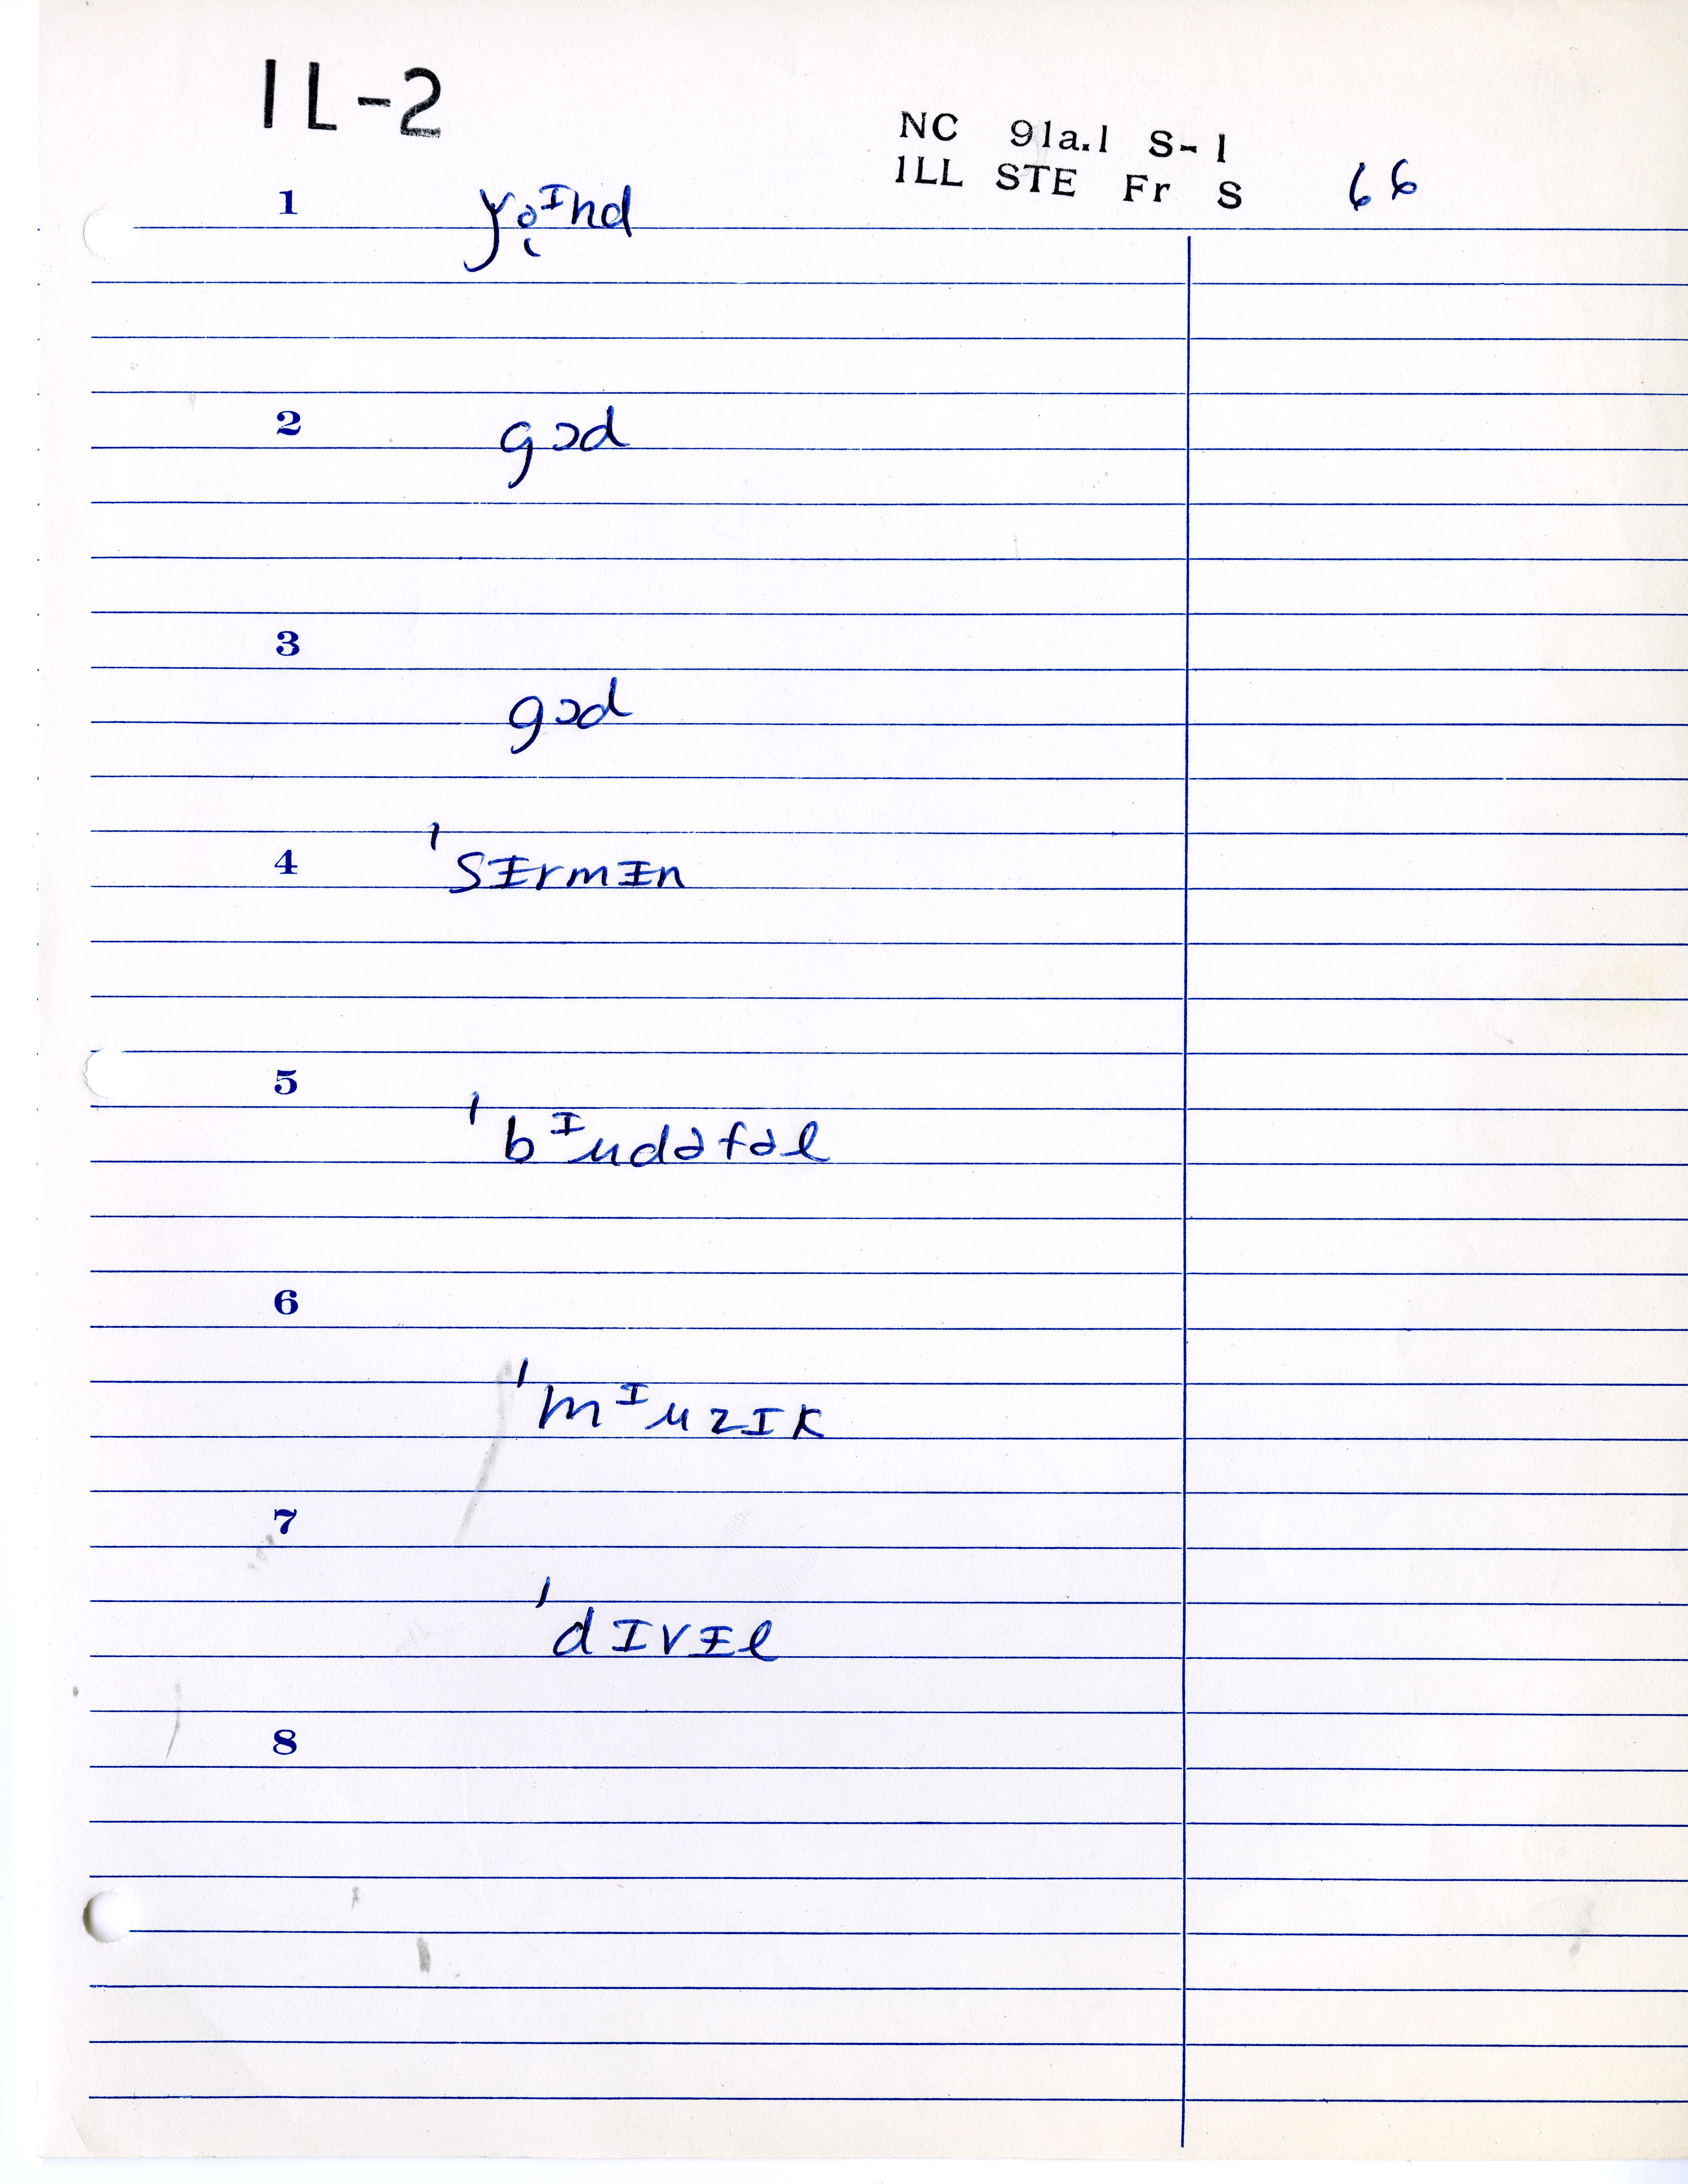 IL-2
NC 91a.1 S-1
ILL STE Fr S 66
1 jo̜ᶦnd
2 gɔd
3
gɔd
4 ˈsɨrmɨn
5
ˈbᶦudəfəl
6
ˈmᶦuzɪk
7
ˈdɪvɨl
8